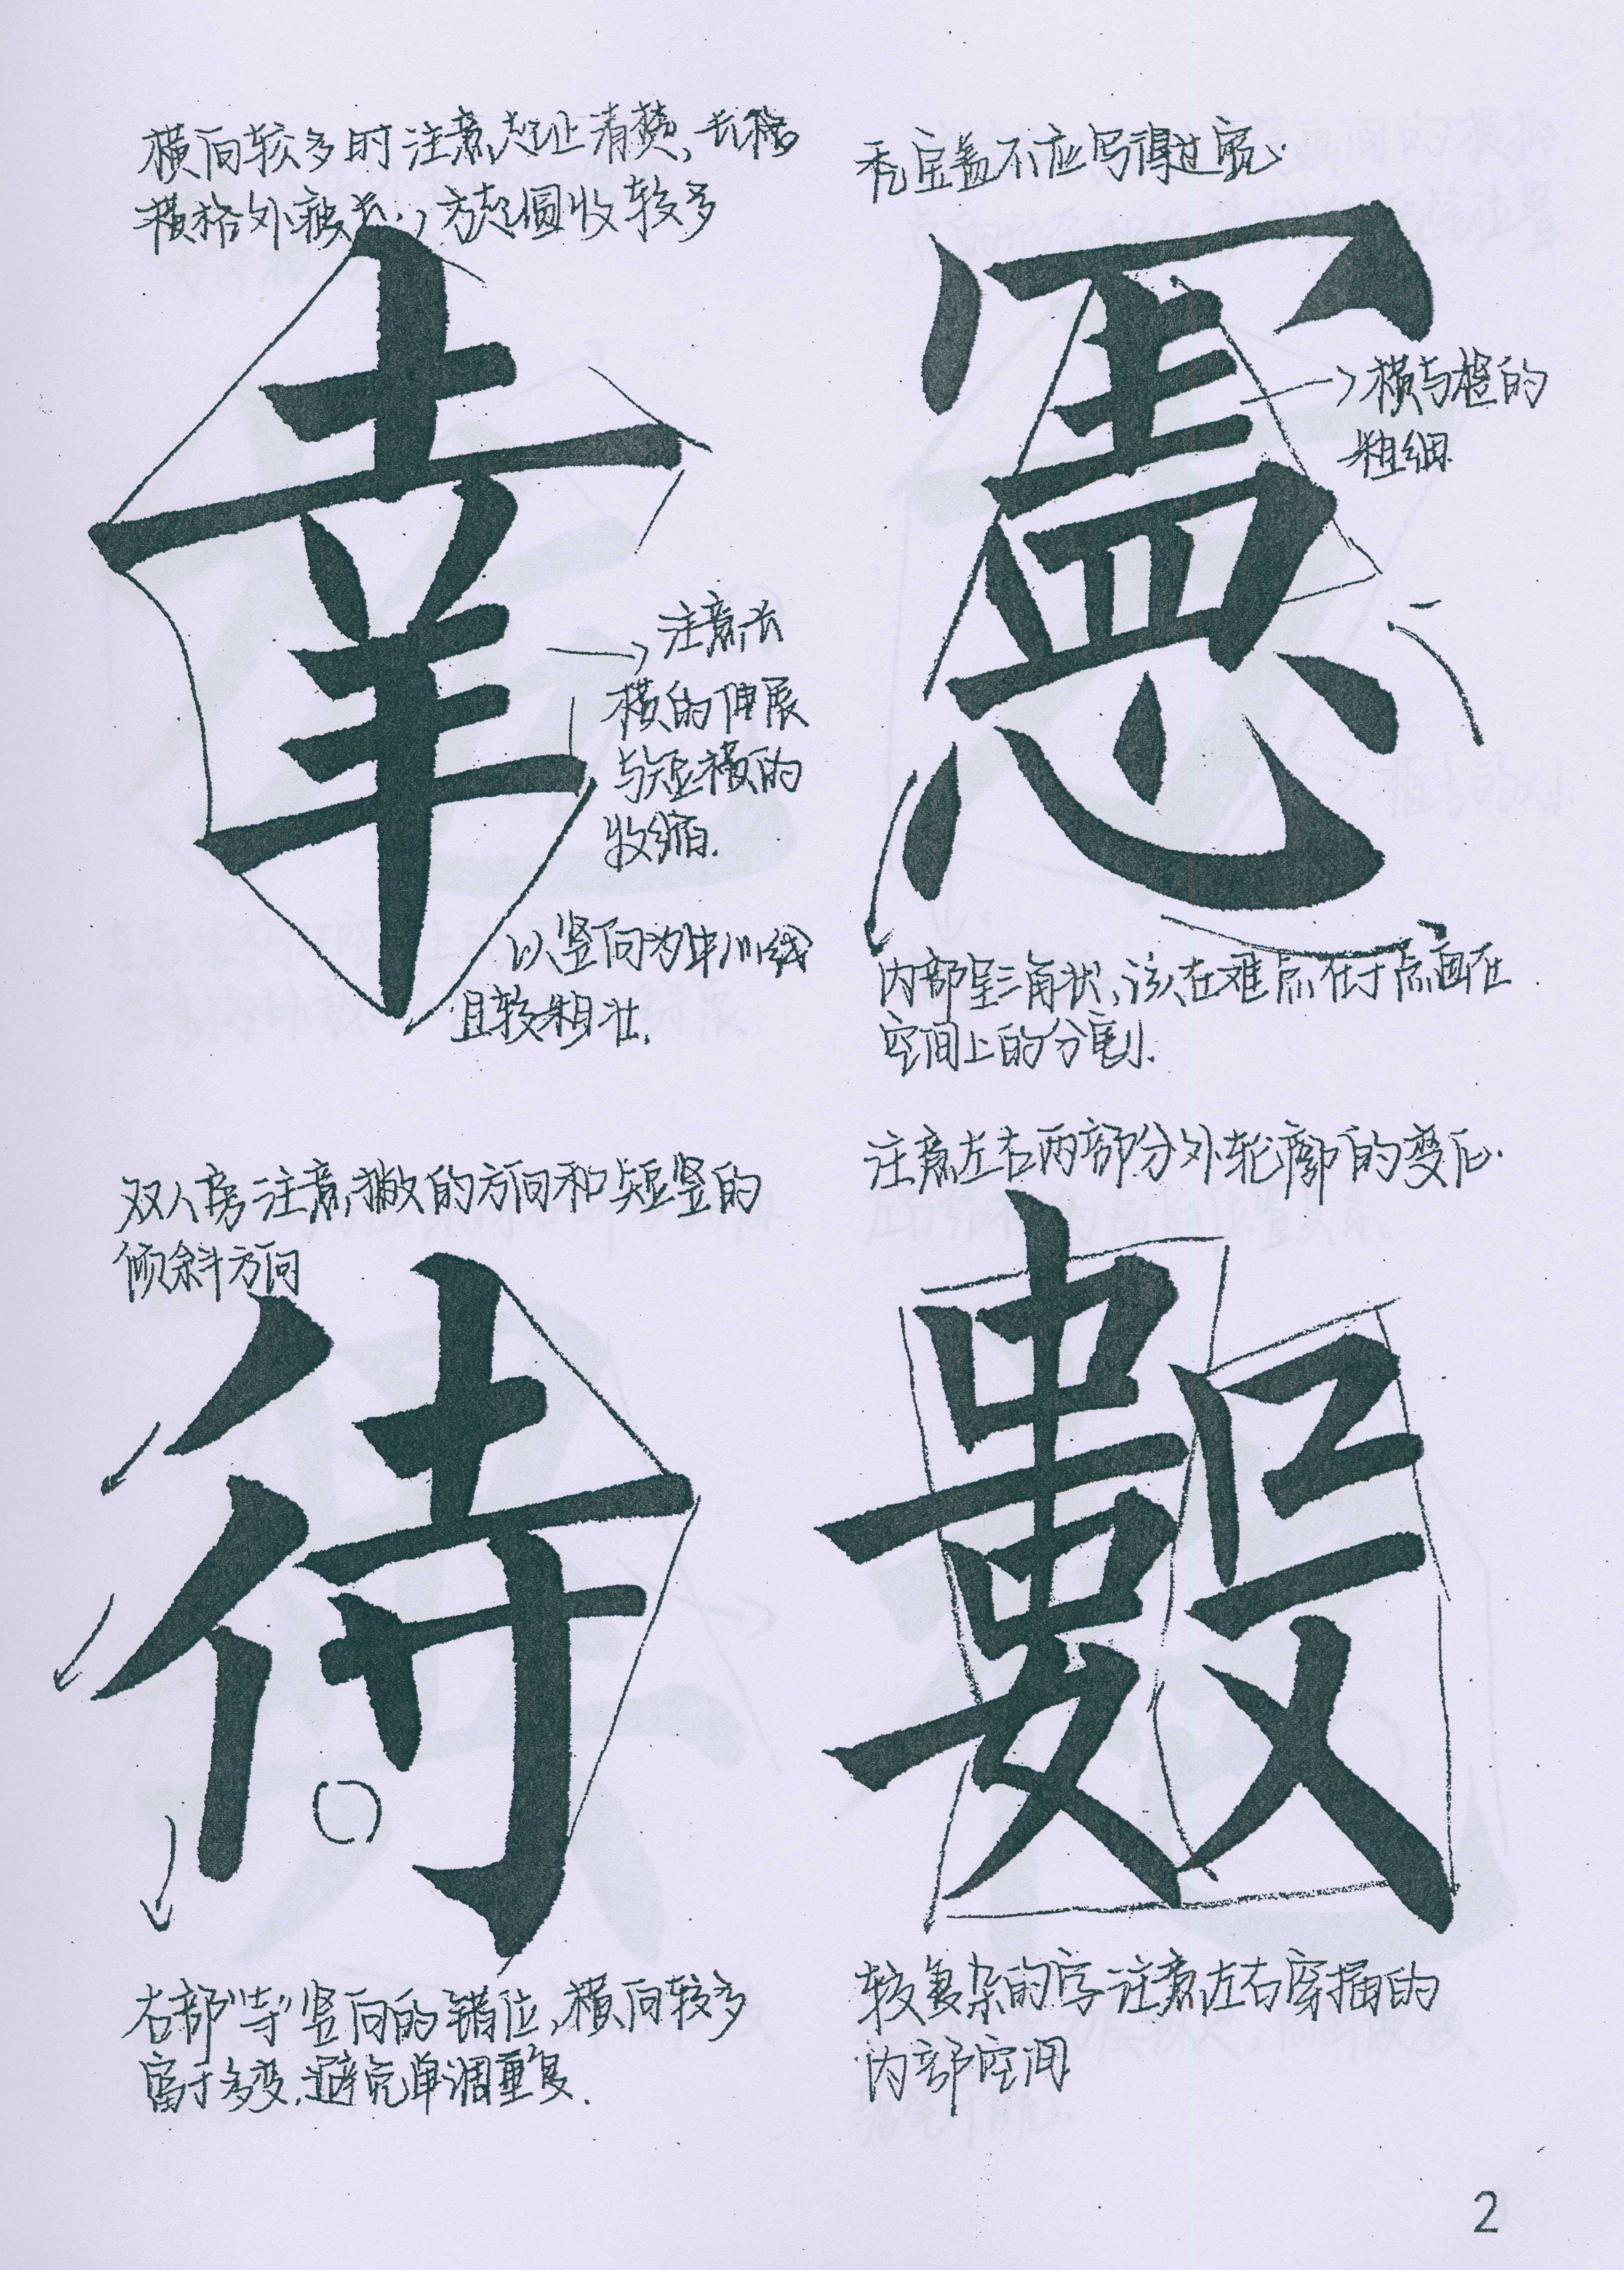 横向较多时注意起止清楚、长横
横格外疲长,方起圆收较多
幸
注意长
横的伸展
与短横的
收缩.
以竖向为中心线
且较粗壮.
秃宝盖不应写得过宽.
憲
横与橙的
粗细.
内部呈三角状,该在难点在于点画在
空间上的分割.
双人旁注意撇的方向和短竖的
倾斜方向
待
右部"寺"竖向的错位,横向较多
富于多变.避免单调重复.
注意左右两部分外轮廓的变化.
數
较复杂的字注意左右穿插的
内部空间
2